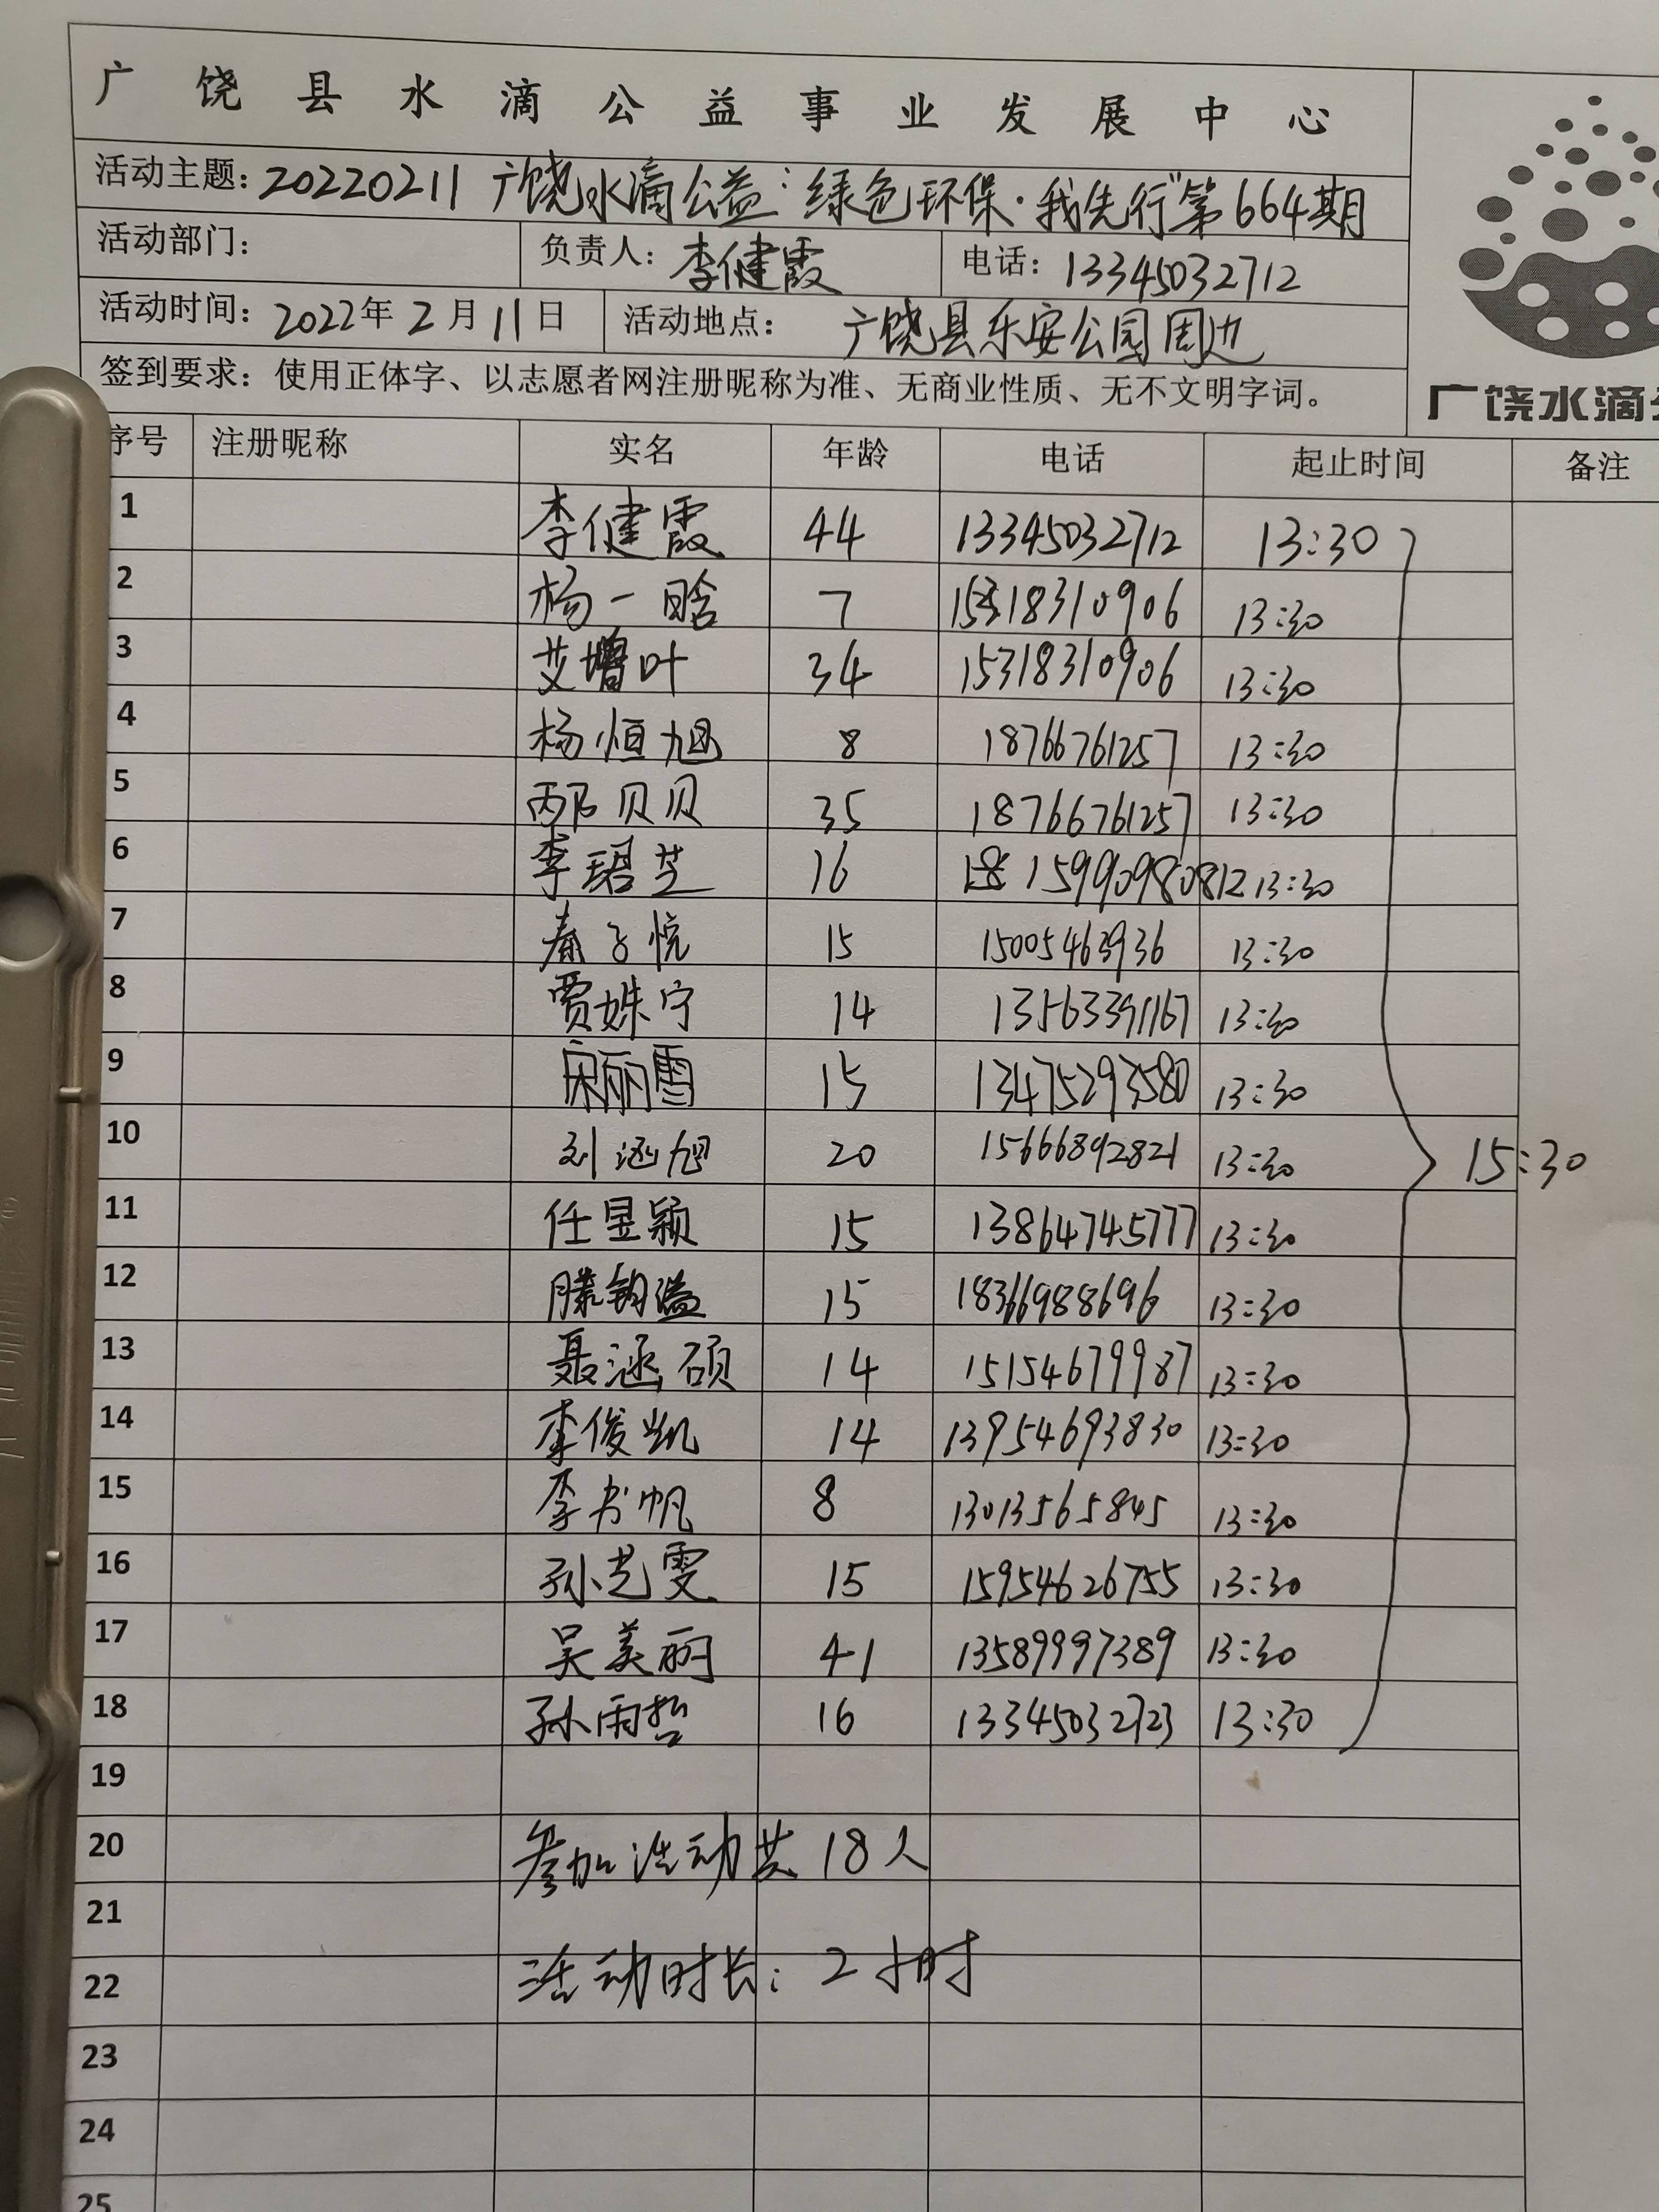 广饶县水滴公益事业发展中心
活动主题：20220211 广饶水滴公益"绿色环保·我先行"第664期
活动部门： 负责人：李健霞 电话：13345032712
活动时间：2022年2月11日 活动地点：广饶县乐安公园周边
签到要求：使用正体字、以志愿者网注册昵称为准、无商业性质、无不文明字词。
广饶水滴
序号 注册昵称 实名 年龄 电话 起止时间 备注
1 李健霞 44 13345032712 13:30
2 杨一晗 7 15318310906 13:30
3 艾增叶 34 15318310906 13:30
4 杨恒旭 8 18766761257 13:30
5 邴贝贝 35 18766761257 13:30
6 李珺芝 16 13:30
7 秦子悦 15 15005463936 13:30
8 贾姝宁 14 13563391167 13:30
9 宋丽雪 15 13475293580 13:30
10 刘涵旭 20 15666892821 13:30
15:30
11 任昱颖 15 13864745777 13:30
12 滕钧溢 15 18366988696 13:30
13 聂涵硕 14 15154679987 13:30
14 李俊凯 14 13954693830 13:30
15 李书帆 8 13013565845 13:30
16 孙艺雯 15 15954626755 13:30
17 吴美丽 41 13589997389 13:30
18 孙雨哲 16 13345032723 13:30
19
20 参加活动共18人
21
22 活动时长：2小时
23
24
25